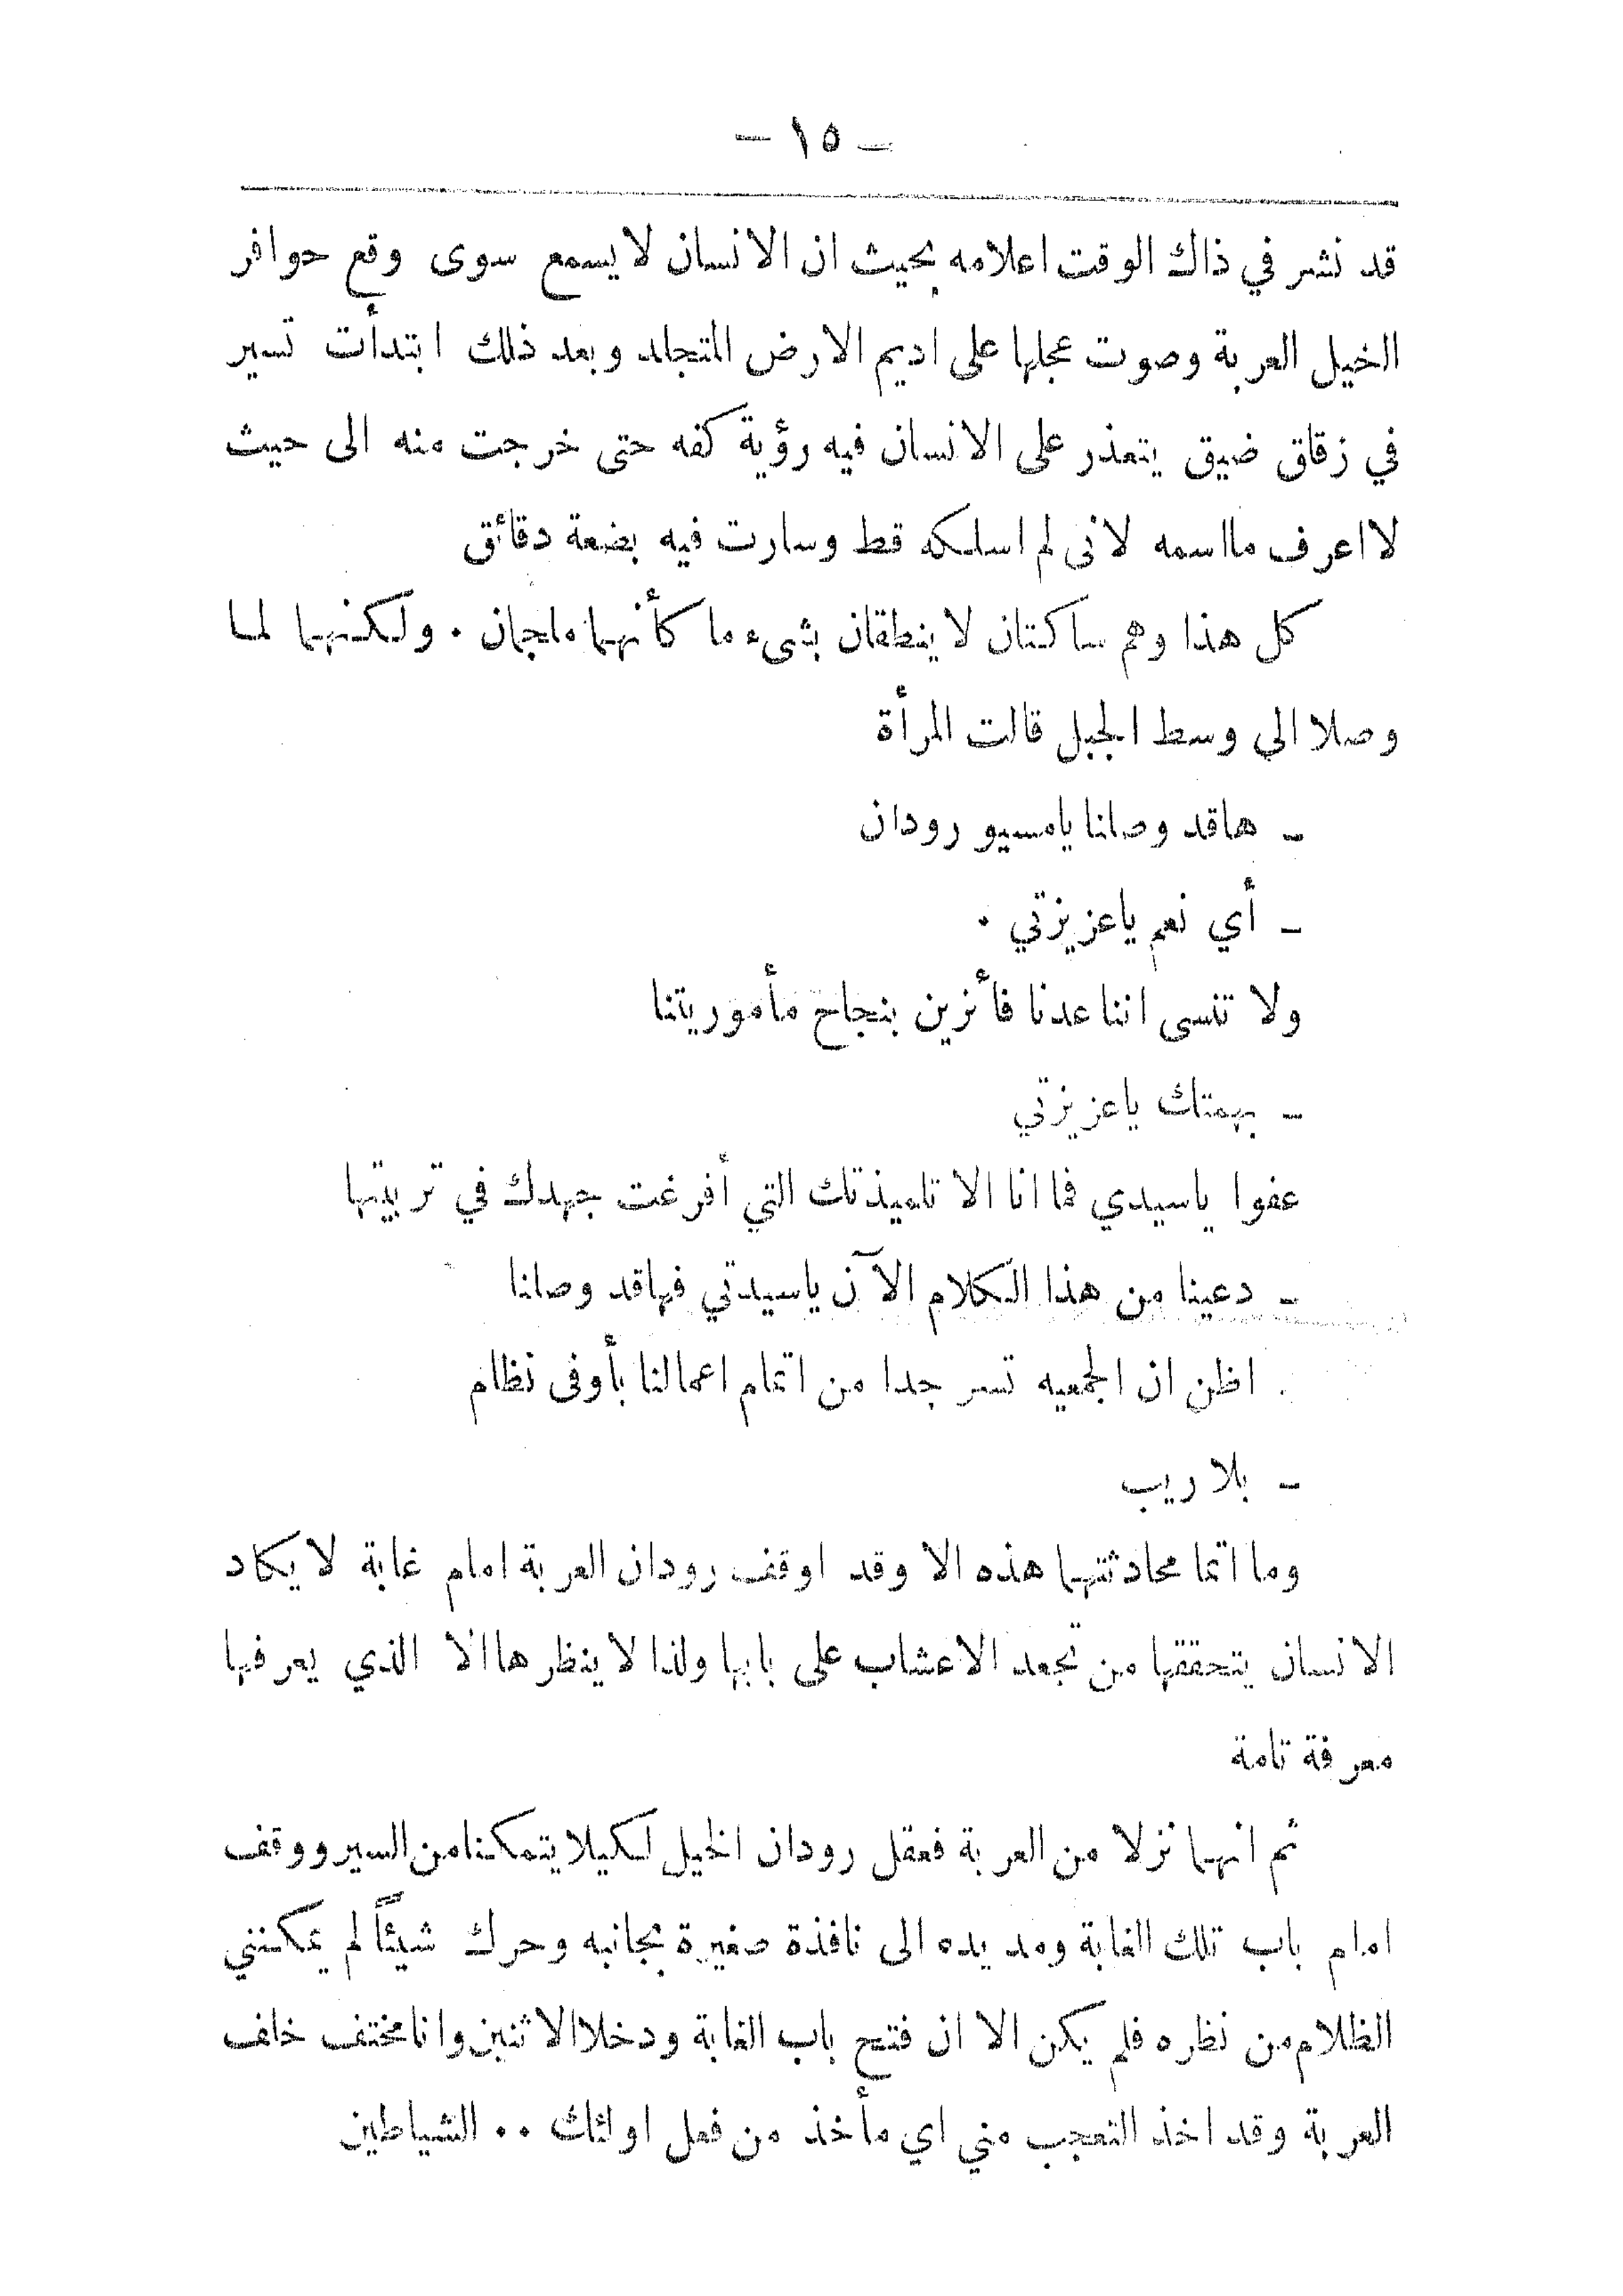 – ١٥ –
قد نشر في ذاك الوقت اعلامه بحيث ان الانسان لا يسمع سوى وقع حوافر
الخيل العربة وصوت عجلها على اديم الارض المتجلد وبعد ذلك ابتدأت تسير
في زقاق ضيق يتعذر على الانسان فيه رؤية كفه حتى خرجت منه الى حيث
لا اعرف ما اسمه لانى لم اسلكه قط وسارت فيه بضعة دقائق
كل هذا وهم ساكتان لا ينطقان بشىء ما كأنهما ملجمان . ولكنهما لما
وصلا الي وسط الجبل قالت المرأة
– ها قد وصلنا يامسيو رودان
– أي نعم ياعزيزتي .
ولا تنسى اننا عدنا فأزين بنجاح مأموريتنا
– بهمتك ياعزيزتي
عفوا ياسيدي فما انا الا تلميذتك التي أفرغت جهدك في تربيتها
– دعينا من هذا الكلام الآن ياسيدتي فها قد وصلنا
. اظن ان الجمعيه تسر جدا من اتمام اعمالنا بأوفى نظام
– بلا ريب
وما اتما محادثتهما هذه الا وقد اوقف رودان العربة امام غابة لا يكاد
الانسان يتحققها من تجعد الاعشاب على بابها ولذا لا ينظرها الا الذي يعرفها
معرفة تامة
ثم انهما نزلا من العربة فعقل رودان الخيل لكيلا يتمكنا من السير ووقف
امام باب تلك الغابة ومد يده الى نافذة صغيرة بجانبه وحرك شيئاً لم يمكنني
الظلام من نظره فلم يكن الا ان فتح باب الغابة ودخلا الاثنين وانا مختف خلف
العربة وقد اخذ التعجب مني اي مأخذ من فعل اولئك .. الشياطين